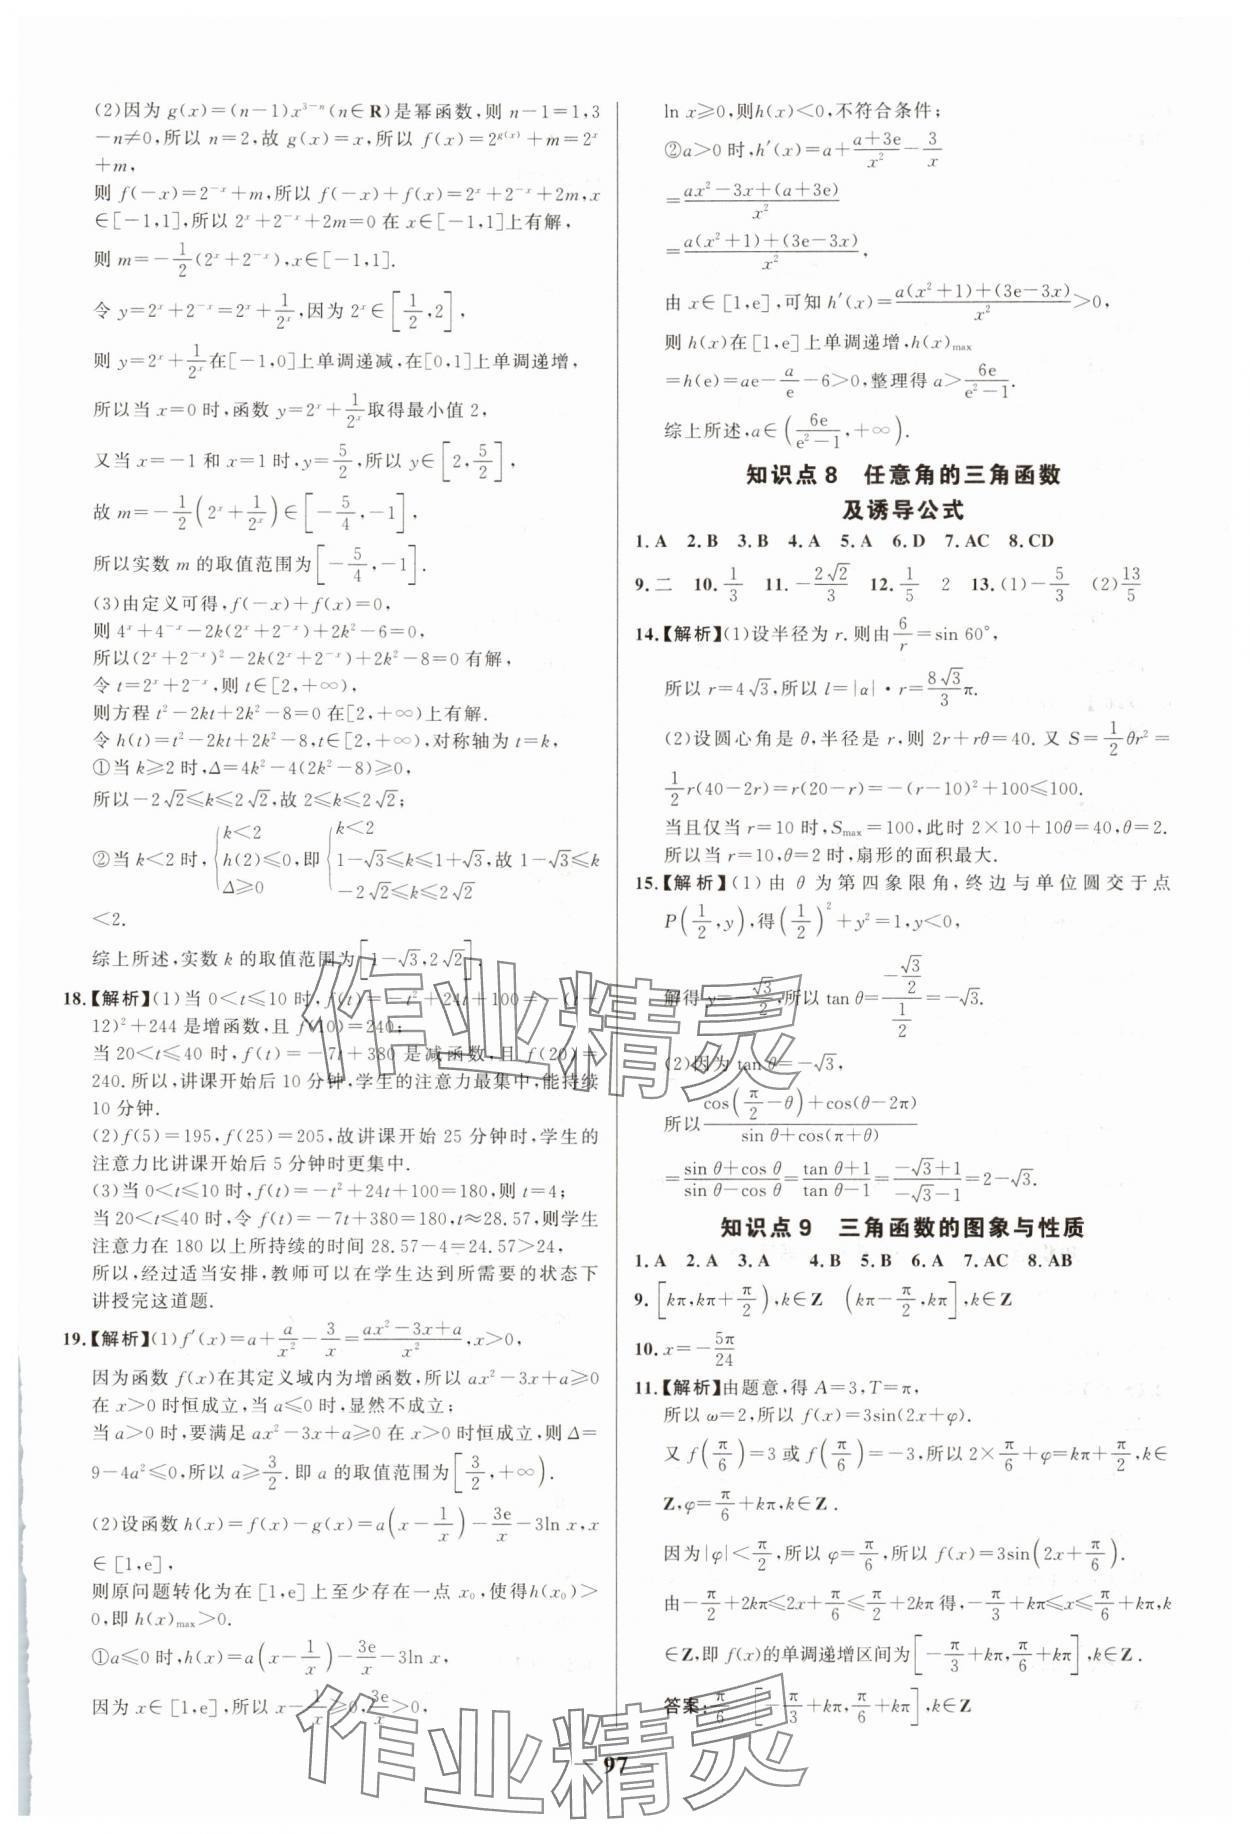 (2)因为 g(x)=(n-1)x^{3-n}(n∈R)是幂函数,则 n-1=1,3
-n≠0,所以 n=2,故 g(x)=x,所以 f(x)=2^{g(x)}+m=2^x
+m,
则 f(-x)=2^{-x}+m,所以 f(-x)+f(x)=2^x+2^{-x}+2m,x
∈[-1,1],所以 2^x+2^{-x}+2m=0 在 x∈[-1,1]上有解,
则 m=-\frac{1}{2}(2^x+2^{-x}),x∈[-1,1].
令 y=2^x+2^{-x}=2^x+\frac{1}{2^x},因为 2^x∈[\frac{1}{2},2],
则 y=2^x+\frac{1}{2^x}在[-1,0]上单调递减,在[0,1]上单调递增,
所以当 x=0 时,函数 y=2^x+\frac{1}{2^x}取得最小值 2,
又当 x=-1 和 x=1 时,y=\frac{5}{2},所以 y∈[2,\frac{5}{2}],
故 m=-\frac{1}{2}(2^x+\frac{1}{2^x})∈[-\frac{5}{4},-1],
所以实数 m 的取值范围为[-\frac{5}{4},-1].
(3)由定义可得,f(-x)+f(x)=0,
则 4^x+4^{-x}-2k(2^x+2^{-x})+2k²-6=0,
所以(2^x+2^{-x})²-2k(2^x+2^{-x})+2k²-8=0 有解,
令 t=2^x+2^{-x},则 t∈[2,+∞),
则方程 t²-2kt+2k²-8=0 在[2,+∞)上有解.
令 h(t)=t²-2kt+2k²-8,t∈[2,+∞),对称轴为 t=k,
①当 k≥2 时,Δ=4k²-4(2k²-8)≥0,
所以-2√2≤k≤2√2,故 2≤k≤2√2;
②当 k<2 时,{k<2 h(2)≤0 Δ≥0,即{k<2 1-√3≤k≤1+√3 -2√2≤k≤2√2,故 1-√3≤k
<2.
综上所述,实数 k 的取值范围为[1-√3,2√2].
18.【解析】(1)当 0<t≤10 时,f(t)=-t²+24t+100=-(t-
12)²+244 是增函数,且 f(10)=240;
当 20<t≤40 时,f(t)=-7t+380 是减函数,且 f(20)=
240.所以,讲课开始后 10 分钟,学生的注意力最集中,能持续
10 分钟.
(2)f(5)=195,f(25)=205,故讲课开始 25 分钟时,学生的
注意力比讲课开始后 5 分钟时更集中.
(3)当 0<t≤10 时,f(t)=-t²+24t+100=180,则 t=4;
当 20<t≤40 时,令 f(t)=-7t+380=180,t≈28.57,则学生
注意力在 180 以上所持续的时间 28.57-4=24.57>24,
所以,经过适当安排,教师可以在学生达到所需要的状态下
讲授完这道题.
19.【解析】(1)f′(x)=a+\frac{a}{x²}-\frac{3}{x}=\frac{ax²-3x+a}{x²},x>0,
因为函数 f(x)在其定义域内为增函数,所以 ax²-3x+a≥0
在 x>0 时恒成立,当 a≤0 时,显然不成立;
当 a>0 时,要满足 ax²-3x+a≥0 在 x>0 时恒成立,则 Δ=
9-4a²≤0,所以 a≥\frac{3}{2}.即 a 的取值范围为[\frac{3}{2},+∞).
(2)设函数 h(x)=f(x)-g(x)=a(x-\frac{1}{x})-\frac{3e}{x}-3ln x,x
∈[1,e],
则原问题转化为在[1,e]上至少存在一点 x₀,使得h(x₀)>
0,即 h(x)_{max}>0.
①a≤0 时,h(x)=a(x-\frac{1}{x})-\frac{3e}{x}-3ln x,
因为 x∈[1,e],所以 x-\frac{1}{x}≥0,\frac{3e}{x}>0,
ln x≥0,则h(x)<0,不符合条件;
②a>0 时,h′(x)=a+\frac{a+3e}{x²}-\frac{3}{x}
=\frac{ax²-3x+(a+3e)}{x²}
=\frac{a(x²+1)+(3e-3x)}{x²},
由 x∈[1,e],可知 h′(x)=\frac{a(x²+1)+(3e-3x)}{x²}>0,
则 h(x)在[1,e]上单调递增,h(x)_{max}
=h(e)=ae-\frac{a}{e}-6>0,整理得 a>\frac{6e}{e²-1}.
综上所述,a∈(\frac{6e}{e²-1},+∞).
知识点 8 任意角的三角函数
及诱导公式
1.A 2.B 3.B 4.A 5.A 6.D 7.AC 8.CD
9.二 10.\frac{1}{3} 11.-\frac{2√2}{3} 12.\frac{1}{5} 2 13.(1)-\frac{5}{3} (2)\frac{13}{5}
14.【解析】(1)设半径为 r.则由\frac{6}{r}=sin 60°,
所以 r=4√3,所以 l=|α|·r=\frac{8√3}{3}π.
(2)设圆心角是 θ,半径是 r,则 2r+rθ=40. 又 S=\frac{1}{2}θr²=
\frac{1}{2}r(40-2r)=r(20-r)=-(r-10)²+100≤100.
当且仅当 r=10 时,S_{max}=100,此时 2×10+10θ=40,θ=2.
所以当 r=10,θ=2 时,扇形的面积最大.
15.【解析】(1)由 θ 为第四象限角,终边与单位圆交于点
P(\frac{1}{2},y),得(\frac{1}{2})²+y²=1,y<0,
解得 y=-\frac{√3}{2},所以 tan θ=\frac{-\frac{√3}{2}}{\frac{1}{2}}=-√3.
(2)因为 tan θ=-√3,
所以\frac{cos(\frac{π}{2}-θ)+cos(θ-2π)}{sin θ+cos(π+θ)}
=\frac{sin θ+cos θ}{sin θ-cos θ}=\frac{tan θ+1}{tan θ-1}=\frac{-√3+1}{-√3-1}=2-√3.
知识点 9 三角函数的图象与性质
1.A 2.A 3.A 4.B 5.B 6.A 7.AC 8.AB
9.[kπ,kπ+\frac{π}{2}),k∈Z (kπ-\frac{π}{2},kπ],k∈Z
10.x=-\frac{5π}{24}
11.【解析】由题意,得 A=3,T=π,
所以 ω=2,所以 f(x)=3sin(2x+φ).
又 f(\frac{π}{6})=3 或 f(\frac{π}{6})=-3,所以 2×\frac{π}{6}+φ=kπ+\frac{π}{2},k∈
Z,φ=\frac{π}{6}+kπ,k∈Z.
因为|φ|<\frac{π}{2},所以 φ=\frac{π}{6},所以 f(x)=3sin(2x+\frac{π}{6}).
由-\frac{π}{2}+2kπ≤2x+\frac{π}{6}≤\frac{π}{2}+2kπ得,-\frac{π}{3}+kπ≤x≤\frac{π}{6}+kπ,k
∈Z,即 f(x)的单调递增区间为[-\frac{π}{3}+kπ,\frac{π}{6}+kπ],k∈Z.
答案:\frac{π}{6} [-\frac{π}{3}+kπ,\frac{π}{6}+kπ],k∈Z
97
作业精灵
作业精灵